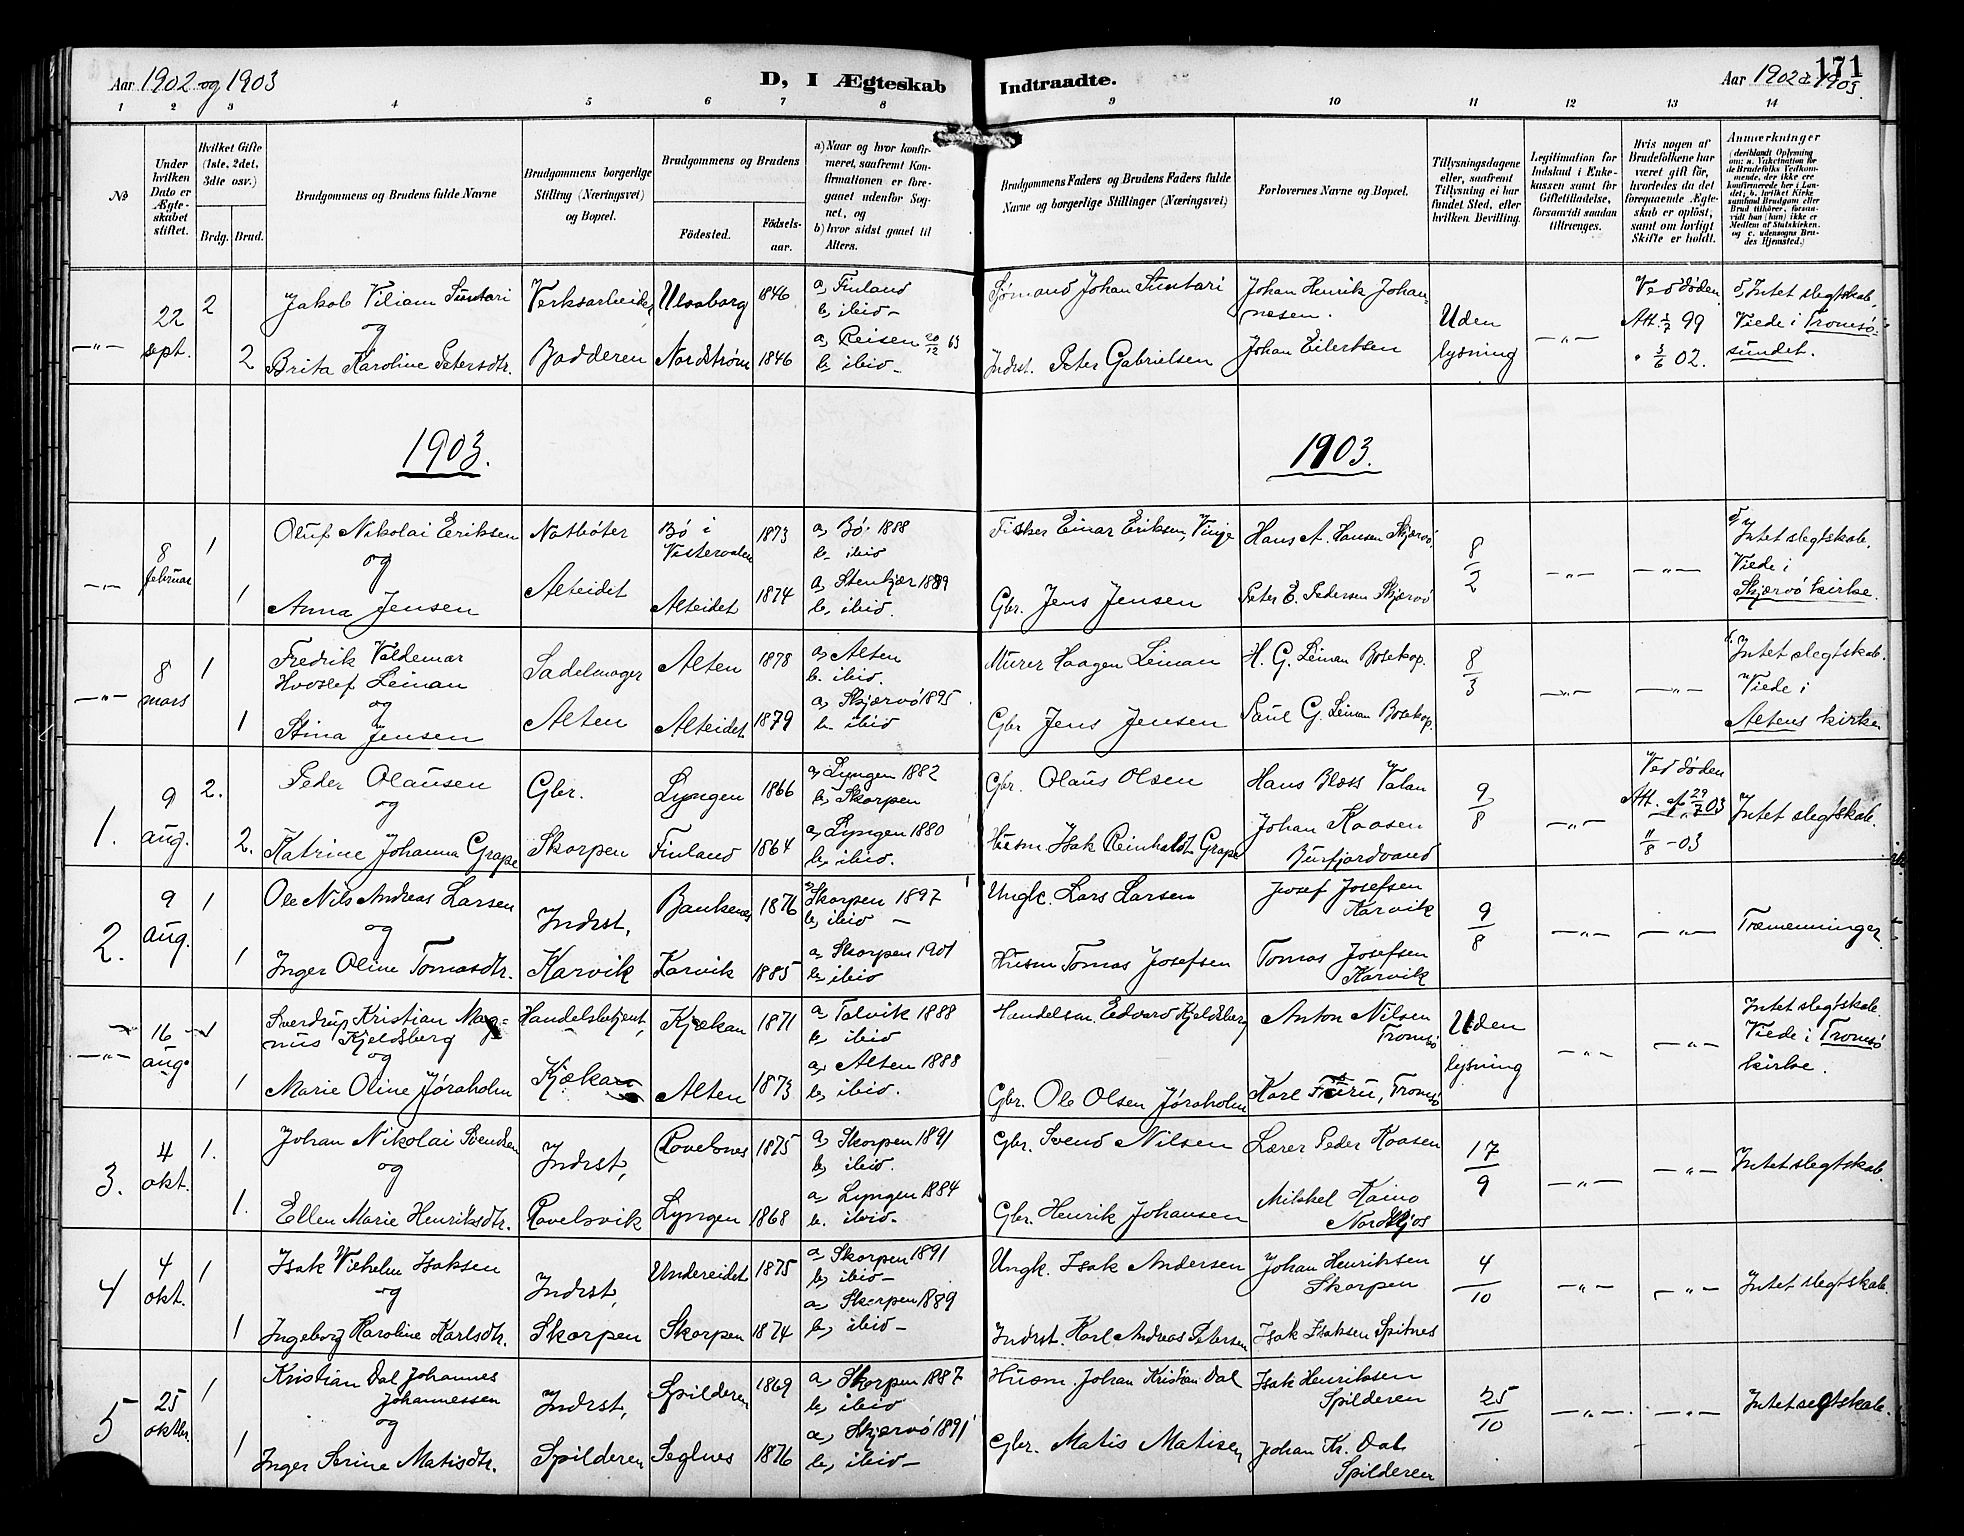 Aar 1902 og 1903
D, I Ægteskab Indtraadte.
Aar 1902 & 1903.
171
1 2 3 4 5 6 7 8 9 10 11 12 13 14
№
Under hvilken Dato er Ægteskabet stiftet.
Hvilket Gifte (1ste, 2det, 3die osv.)
Brdg. Brud.
Brudgommens og Brudens fulde Navne
Brudgommens borgerlige Stilling (Næringsvei) og Bopæl.
Brudgommens og Brudens
Födested.
Födsels-aar.
a) Naar og hvor konfirmeret, saafremt Konfirmationen er foregaaet udenfor Sognet, og
b) hvor sidst gaaet til Alters.
Brudgommens Faders og Brudens Faders fulde Navne og borgerlige Stillinger (Næringsvei)
Forlovernes Navne og Bopæl.
Tillysningsdagene eller, saafremt Tillysning ei har fundet Sted, efter hvilken Bevilling.
Legitimation for Indskud i Enkekassen samt for Giftetilladelse, forsaavidt saadan tiltrænges.
Hvis nogen af Brudefolkene har været gift för, hvorledes da det foregaaende Ægteskab er oplöst, samt om lovligt Skifte er holdt.
Anmærkninger
(deriblandt Oplysning om: a. Vakcination for de Brudefolks Vedkommende, der ikke ere konfirmerede her i Landet; b. hvilket Kirkesamfund Brudgom eller Brud tilhörer, forsaavidt han (hun) ikke er Medlem af Statskirken. og c. udensogns Brudes Hjemsted.)
—"— 22 sept. 2 Jakob Viliam Suntari Verksarbeider, Uleaborg 1846 a, Finland b, ibid— Sjømand Johan Suntari Johan Henrik Johannesen. Uden lysning —"— Ved døden. Att. 99 Intet slegtskab. Viede i Tromsøsundet.
og
2 Brita Karoline Petersdtr. Badderen Nordstrøm 1846 a, Reisen 20/12 63 b, ibid— Indrst. Peter Gabrielsen Johan Eilertsen " 3/6 02.
1903. 1903.
—"— 8 februar 1 Oluf Nikolai Eriksen Notbøter Bø i Vesteraalen 1873 a, Bø. 1888 b. ibid Fisker Einar Eriksen, Vinje Hans A. Hansen Skjærvø. 8/2 —"— —"— Intet slegtskab. Viede i Skjærvø kirke.
og
1 Anna Jensen Alteidet Alteidet 1874 a, Stenkjær 1889 b, ibid. Gbr. Jens Jensen Peter E. Pedersen Skjærvø
—"— 8 mars 1 Fredrik Valdemar Hvoslef Leinan Sadelmager Alten 1878 a, Alten b. ibid. Murer Haagen Leinan H. G. Leinan Bosekop. 8/3 —"— —"— Intet slegtskab. Viede i Altens kirke
og
1 Stina Jensen Alten Alteidet 1879 a, Skjærvø 1895. b. ibid Gbr Jens Jensen Paul G. Leinan Bosekop.
1. 9 aug. 2. Peder Olausen Gbr. Lyngen 1866 a, Lyngen 1882 b, Skorpen Gbr. Olaus Olsen Hans Valan 9/8 —"— Ved døden Att. af 29/7 03 11/8 —03 Intet slegtskab.
og
2. Katrine Johanna Grape Skorpen Finland 1864 a, Lyngen 1880 b, ibid. Husm Isak Reinholdt Grape Johan Kaasen Burfjordvand
2. 9 aug. 1 Ole Nils Andreas Larsen Indrst, 1876 a, Skorpen 1897 b, ibid — Ungk. Lars Larsen Josef Josefsen Karvik 9/8 —"— —"— Træmenninger.
og
1 Inger Oline Tomasdtr. Karvik Karvik 1885 a, Skorpen 1901 b, ibid Husm Tomas Josefsen Tomas Josefsen Karvik
—"— 16 aug. Sverdrup Kristian Magnus Kjeldsberg Handelsbetjent, Kjækan 1871 a, Talvik 1888 b, ibid Handelsm. Edvard Kjeldsberg Anton Nilsen Tromsø Uden lysning —"— —"— Intet slegtskab. Viede i Tromsø kirke.
og
1 Marie Oline Jøraholm Kjækan Alten 1873 a, Alten 1888 b, ibid. Gbr. Ole Olsen Jøraholm Karl Furu, Tromsø
3. 4 okt. 1. Johan Nikolai Svendsen Indrst, 1875 a, Skorpen 1891 b, ibid. Gbr. Svend Nilsen Lærer Peder Kaasen 17/9 —"— —"— Intet slegtskab.
og
1. Ellen Marie Henriksdtr. Lyngen 1868 a, Lyngen 1884 b. ibid. Gbr. Henrik Johansen Mikkel Kaino Nordkjos
4 4 okt. 1 Isak Vilhelm Isaksen Indrst, Undereidet 1875 a, Skorpen 1891 b, ibid— Ungk. Isak Andersen Johan Henriksen Skorpen 4/10 —"— —"— Intet slegtskab.
og
1 Ingeborg Karoline Karlsdtr. Skorpen Skorpen 1874 a, Skorpen 1889 b, ibid— Indrst. Karl Andreas Petersen Isak Isaksen Spitnes
5 25 oktbr. 1 Kristian Dal Johannes Johannessen Indrst, Spilderen 1869 a, Skorpen 1887 b, ibid Husm. Johan Kristian Dal Isak Henriksen Spilderen 25/10 —"— —"— Intet segtskab.
og
1 Inger Serine Matisdtr. Spilderen Seglnes 1876 a, Skjærvø 1891 b, ibid— Gbr. Matis Matisen Johan Kr. Dal Spilderen